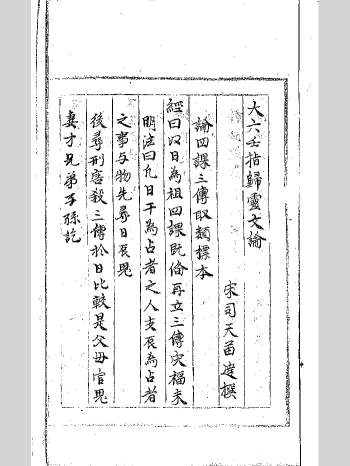 大六壬指歸靈文論
宋司天苗達撰
論四課三傳取類標本
經曰以日為祖四課既俻再立三傳灾福来
明法曰凢日干為占者之人支辰為占者
之事与物先尋日辰鬼
後尋刑害殺三傳於日比較是父母官鬼
妻才兄弟子孫訖